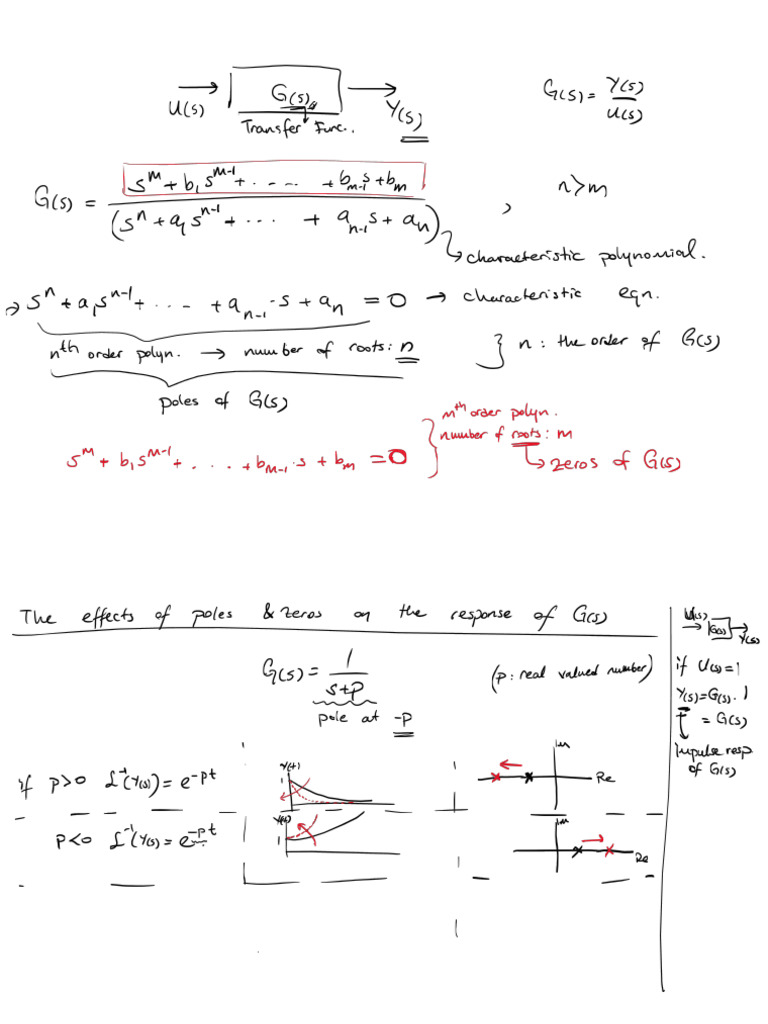 U(s) → G(s) → Y(s)
Transfer Func..
G(s) = Y(s) / U(s)
G(s) = (s^m + b_1 s^{m-1} + ..... + b_{m-1} s + b_m) / (s^n + a_1 s^{n-1} + .... + a_{n-1} s + a_n) , n>m
↳ characteristic polynomial.
→ s^n + a_1 s^{n-1} + ..... + a_{n-1} · s + a_n = 0 → characteristic eqn.
n^th order polyn. → number of roots: n } n : the order of G(s)
poles of G(s)
s^m + b_1 s^{m-1} + . . . . + b_{m-1} · s + b_m = 0
m^th order polyn.
number of roots: m
↳ zeros of G(s)
The effects of poles & zeros on the response of G(s)
G(s) = 1 / (s+p) (p: real valued number)
pole at -p
if p>0 ℒ^{-1}(Y(s)) = e^{-pt}
y(t)
1
Im
Re
p<0 ℒ^{-1}(Y(s)) = e^{-pt}
y(t)
1
Im
Re
U(s) → G(s) → Y(s)
if U(s)=1
Y(s)=G(s). 1
= G(s)
impulse resp
of G(s)